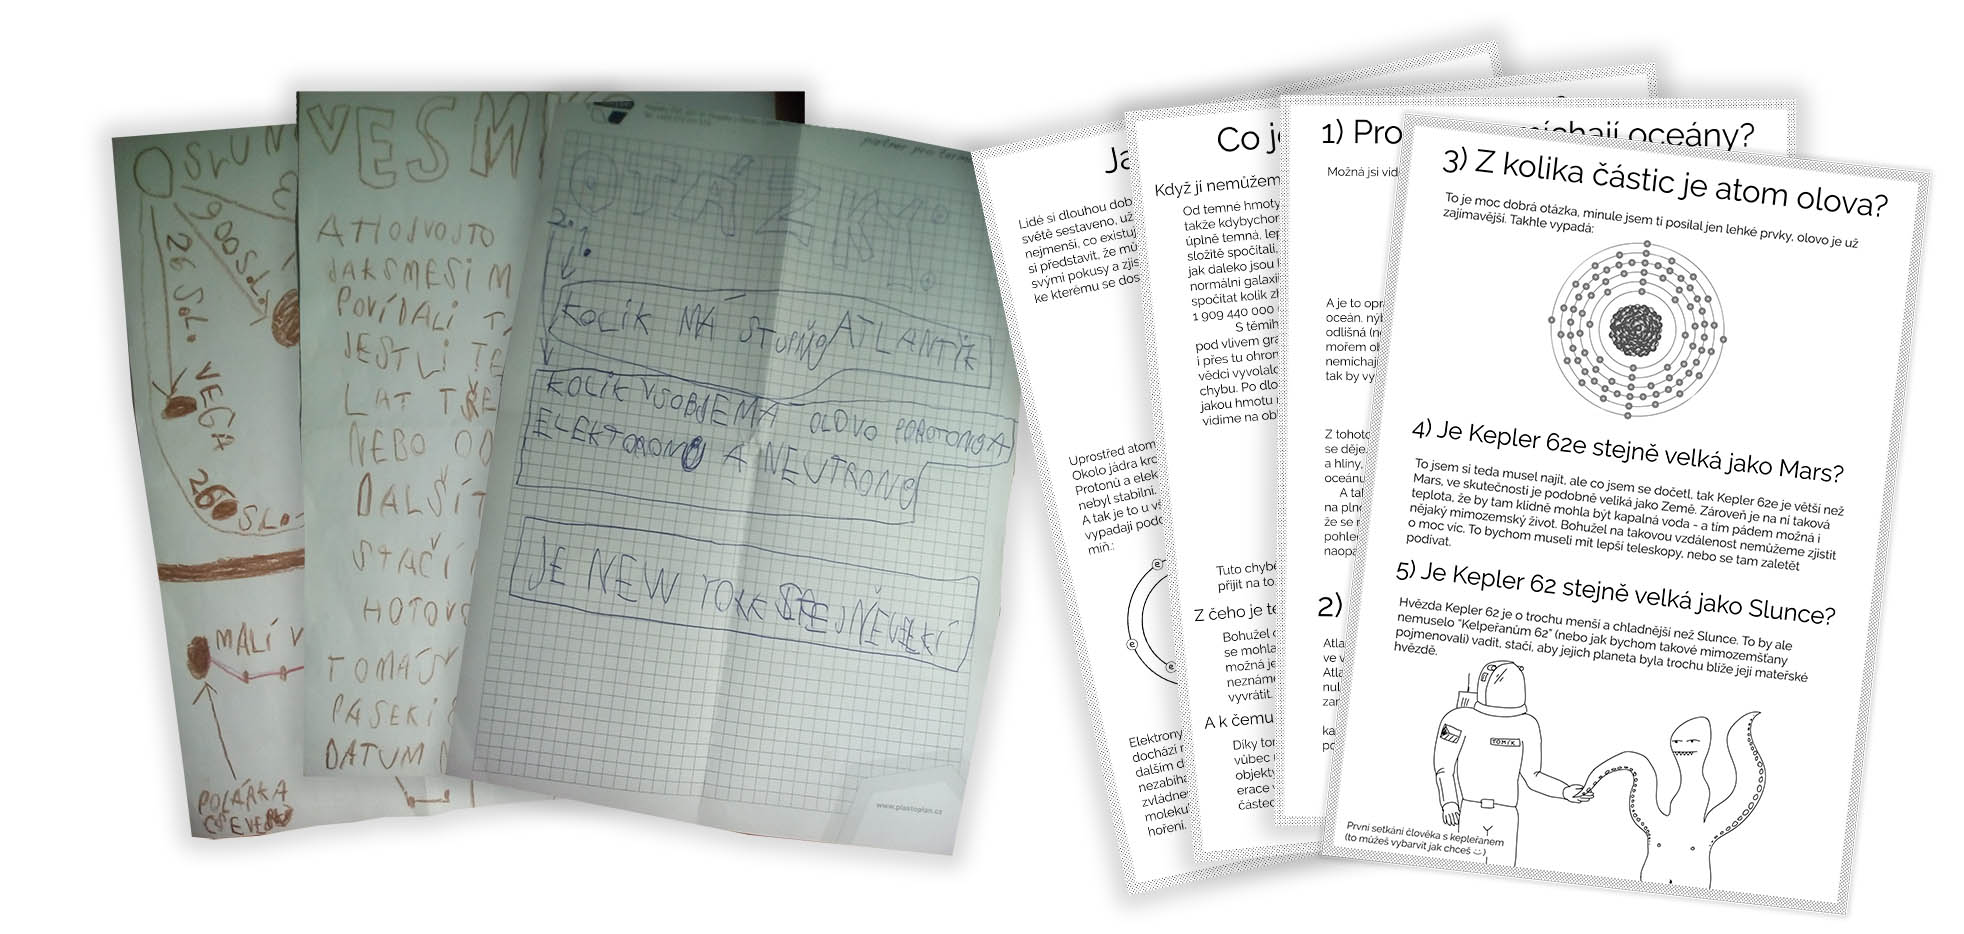 SLUN
900 SLO.
26 SOL.
VEGA
260
SLO.
MALÍ V
POLÁRKA
VESM
AHOJVOJTO
JAKSMESI M
POVÍDALI T
JESTLI TE
LAT TŘE
NEBO OD
DALŠÍ
STAČÍ
HOTOVO
TOMÁŠ
PASEKI
DATUM
OTÁZ
KOLIK MÁ STUPŇŮ ATLANTIK
KOLIK VSOBJEMA OLOVO POROTONGA
ELEKTORONŮ A NEUTRONŮ
JE NEW YORK STEJNĚVELKÍ
www.plastoplan.cz
Ja
Lidé si dlouhou dob
světě sestaveno, už
nejmenší, co existuj
si představit, že mů
svými pokusy a zjis
ke kterému se dos
Uprostřed atom
Okolo jádra kro
Protonů a elek
nebyl stabilní.
A tak je to u vš
vypadají podo
míň.:
e
e
e
Elektrony
dochází r
dalším d
nezabíha
zvládne
molekul
hoření.
Co je
Když jí nemůžem
Od temné hmoty
takže kdybychom
úplně temná, lep
složitě spočítali,
jak daleko jsou h
normální galaxií
spočítat kolik zh
1 909 440 000
S těmih
pod vlivem gra
i přes tu ohron
vědci vyvolalo
chybu. Po dlo
jakou hmotu
vidíme na ob
Tuto chybě
přijít na to
Z čeho je te
Bohužel
se mohla
možná je
neznámé
vyvrátit.
A k čemu
Díky tom
vůbec
objekty
erace v
částec
1) Pro míchají oceány?
Možná jsi vid
A je to opra
oceán, nýb
odlišná (ne
mořem ob
nemíchají
tak by vy
Z tohoto
se děje.
a hlíny,
oceánu
A tal
na plno
že se r
pohled
naopa
2)
Atla
ve v
Atla
nul
zar
ka
po
3) Z kolika částic je atom olova?
To je moc dobrá otázka, minule jsem ti posílal jen lehké prvky, olovo je už
zajímavější. Takhle vypadá:
4) Je Kepler 62e stejně velká jako Mars?
To jsem si teda musel najít, ale co jsem se dočetl, tak Kepler 62e je větší než
Mars, ve skutečnosti je podobně veliká jako Země. Zároveň je na ní taková
teplota, že by tam klidně mohla být kapalná voda - a tím pádem možná i
nějaký mimozemský život. Bohužel na takovou vzdálenost nemůžeme zjistit
o moc víc. To bychom museli mít lepší teleskopy, nebo se tam zaletět
podívat.
5) Je Kepler 62 stejně velká jako Slunce?
Hvězda Kepler 62 je o trochu menší a chladnější než Slunce. To by ale
nemuselo "Kelpeřanům 62" (nebo jak bychom takové mimozemšťany
pojmenovali) vadit, stačí, aby jejich planeta byla trochu blíže její mateřské
hvězdě.
TOMÍK
První setkání člověka s kepleřanem
(to můžeš vybarvit jak chceš :-)